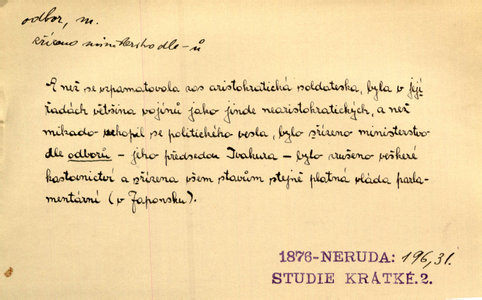 odbor, m.
zřízeno ministerstvo dle -ů
A než se vzpamatovala zas aristokratická soldateska, byla v její
řadách většina vojínů jako jinde nearistokratických, a než
mikado uchopil se politického vesla, bylo zřízeno ministerstvo
dle odborů – jeho předsedou Ivakura – bylo zrušeno veškeré
kastovnictví a zřízena všem stavům stejně platná vláda parla-
mentární (v Japonsku).
1876-NERUDA: 196,31.
STUDIE KRÁTKÉ.2.